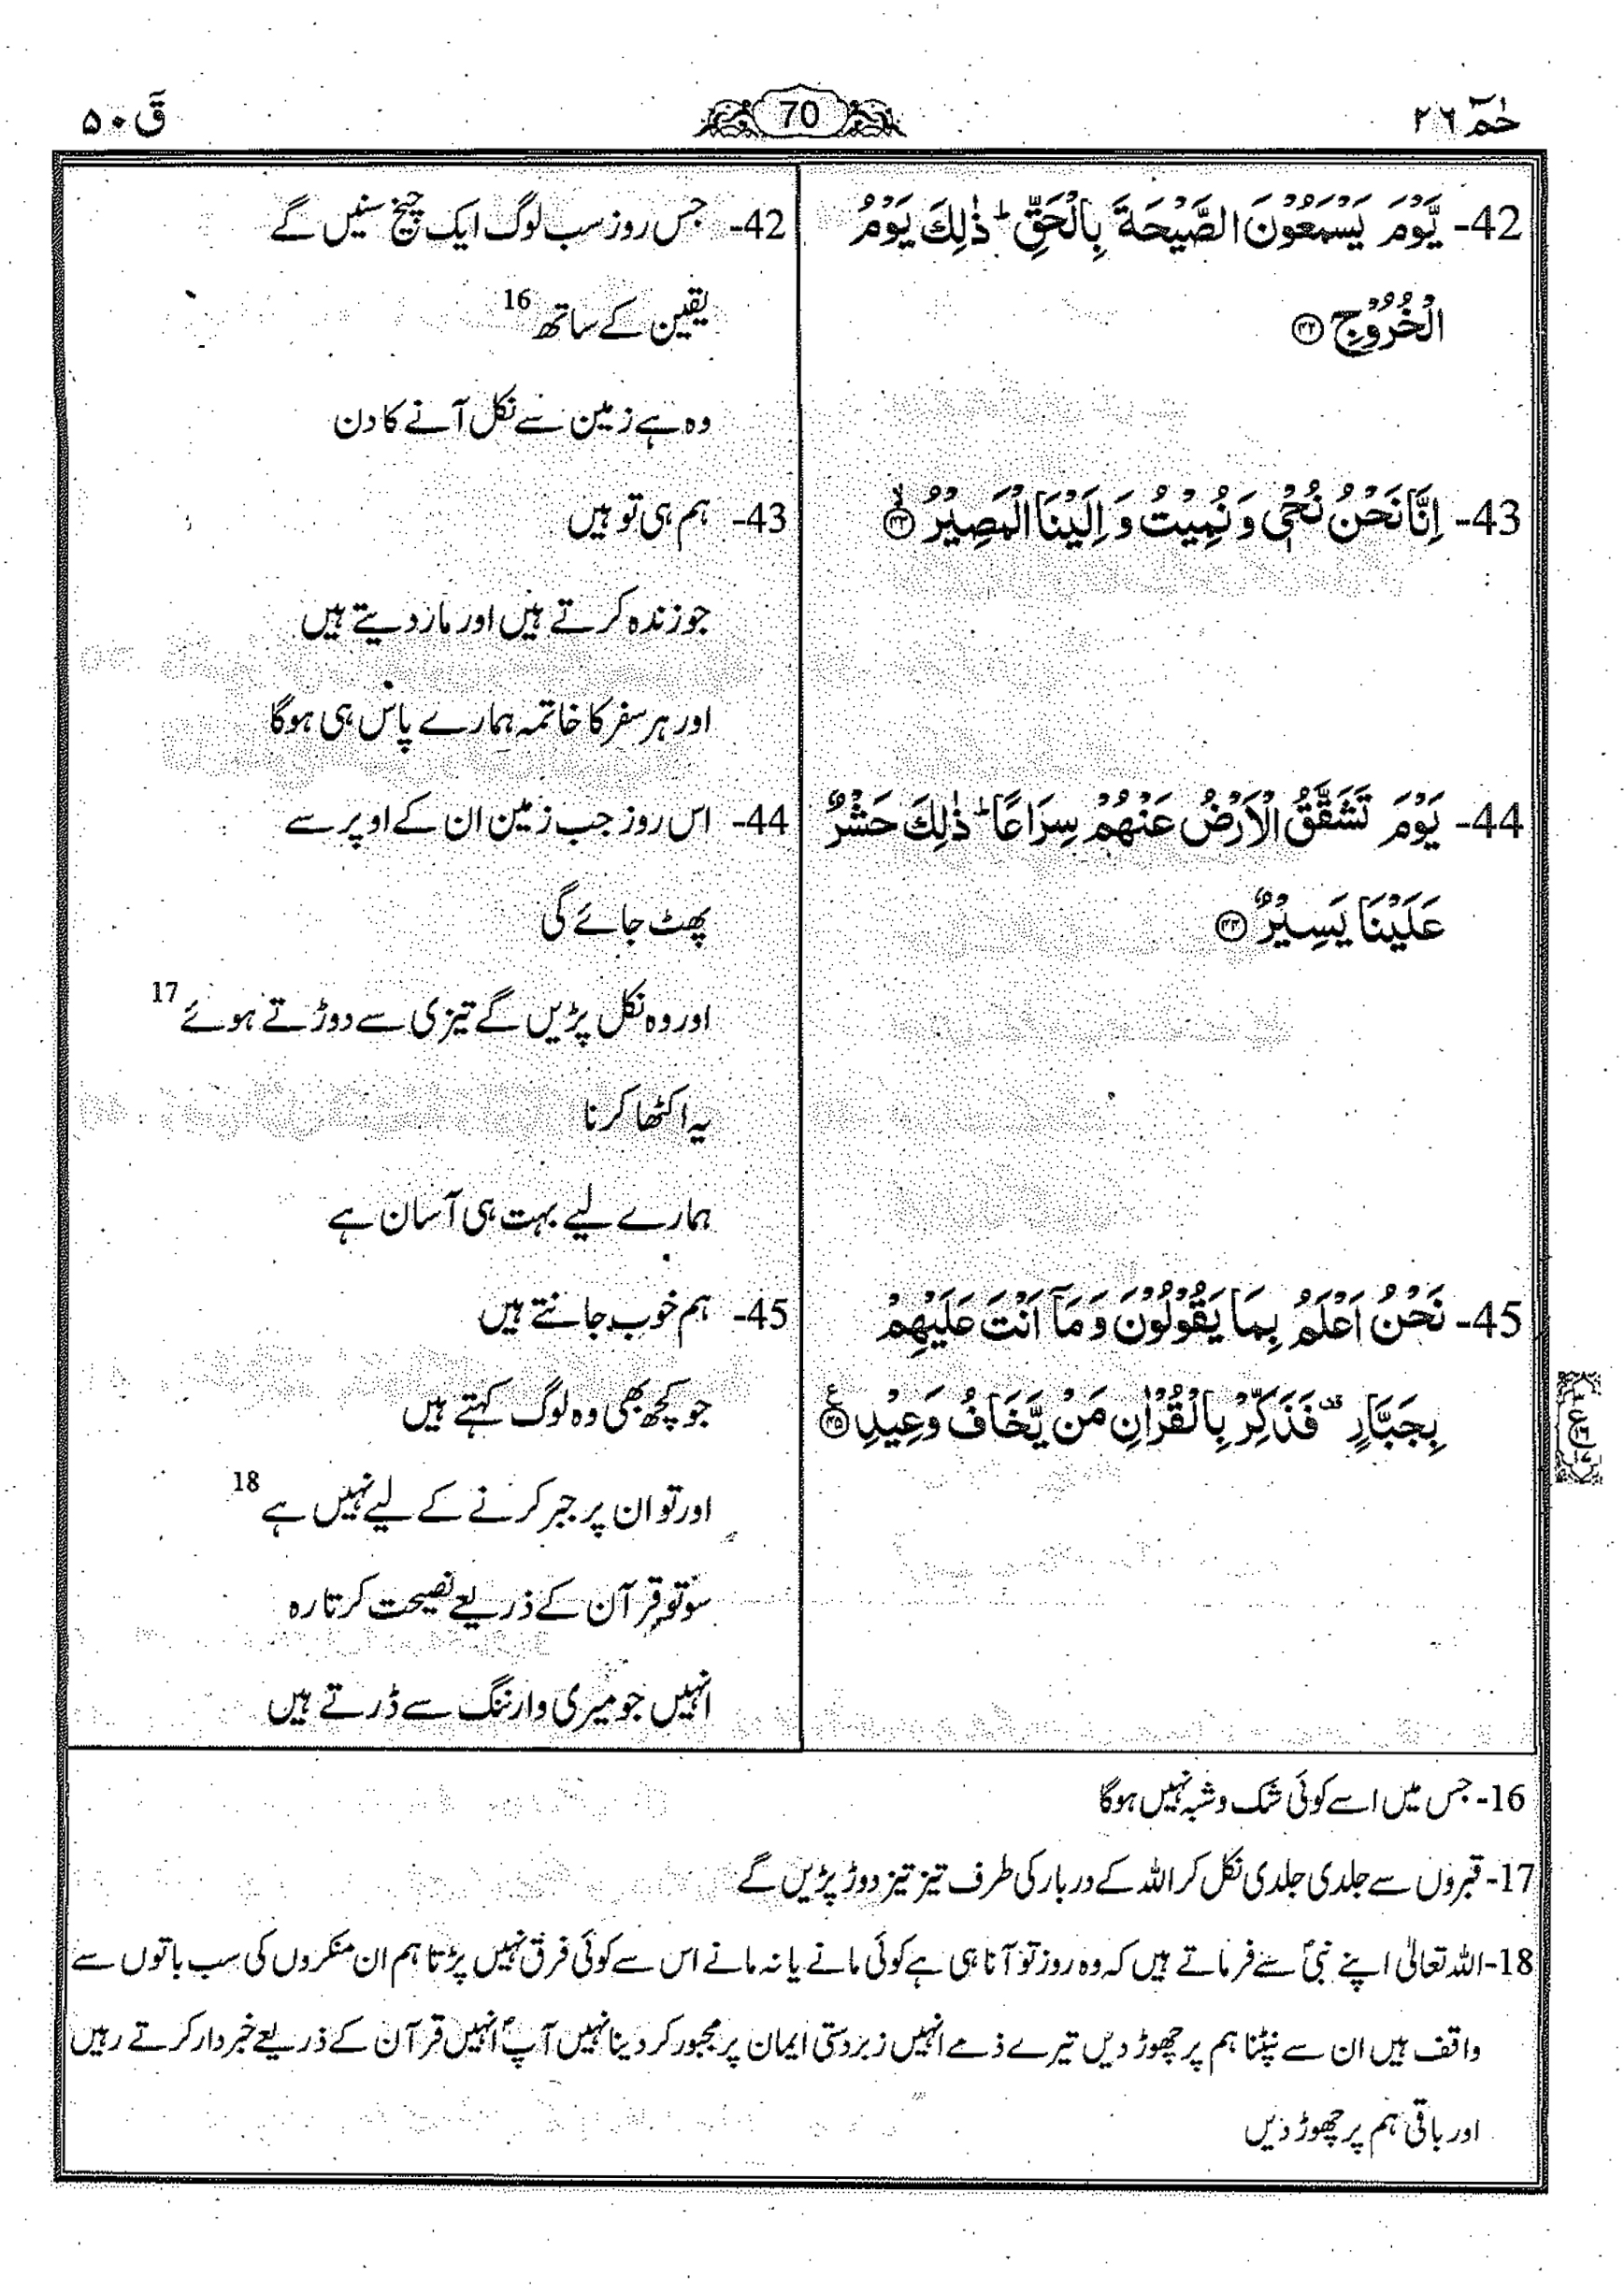 حٰمٓ ۲۶
70
قٓ ۵۰
42- یَّوْمَ یَسْمَعُوْنَ الصَّیْحَةَ بِالْحَقِّ ؕ ذٰلِكَ یَوْمُ
الْخُرُوْجِ ۝۴۲
42- جس روز سب لوگ ایک چیخ سنیں گے
یقین کے ساتھ 16
وہ ہے زمین سے نکل آنے کا دن
43- اِنَّا نَحْنُ نُحْیٖ وَ نُمِیْتُ وَ اِلَیْنَا الْمَصِیْرُ ۙ۝۴۳
43- ہم ہی تو ہیں
جو زندہ کرتے ہیں اور مار دیتے ہیں
اور ہر سفر کا خاتمہ ہمارے پاس ہی ہوگا
44- یَوْمَ تَشَقَّقُ الْاَرْضُ عَنْهُمْ سِرَاعًا ؕ ذٰلِكَ حَشْرٌ
عَلَیْنَا یَسِیْرٌ ۝۴۴
44- اس روز جب زمین ان کے اوپر سے
پھٹ جائے گی
اور وہ نکل پڑیں گے تیزی سے دوڑتے ہوئے 17
یہ اکٹھا کرنا
ہمارے لیے بہت ہی آسان ہے
45- نَحْنُ اَعْلَمُ بِمَا یَقُوْلُوْنَ وَ مَاۤ اَنْتَ عَلَیْهِمْ
بِجَبَّارٍ ۫ فَذَكِّرْ بِالْقُرْاٰنِ مَنْ یَّخَافُ وَعِیْدِ ۝۴۵ ع
45- ہم خوب جانتے ہیں
جو کچھ بھی وہ لوگ کہتے ہیں
اور تو ان پر جبر کرنے کے لیے نہیں ہے 18
سو تو قرآن کے ذریعے نصیحت کرتا رہ
انہیں جو میری وارننگ سے ڈرتے ہیں
16- جس میں اسے کوئی شک و شبہ نہیں ہوگا
17- قبروں سے جلدی جلدی نکل کر اللہ کے دربار کی طرف تیز تیز دوڑ پڑیں گے
18- اللہ تعالیٰ اپنے نبیؐ سے فرماتے ہیں کہ وہ روز تو آنا ہی ہے کوئی مانے یا نہ مانے اس سے کوئی فرق نہیں پڑتا ہم ان منکروں کی سب باتوں سے
واقف ہیں ان سے نپٹنا ہم پر چھوڑ دیں تیرے ذمے انہیں زبردستی ایمان پر مجبور کر دینا نہیں آپؐ انہیں قرآن کے ذریعے خبردار کرتے رہیں
اور باقی ہم پر چھوڑ دیں